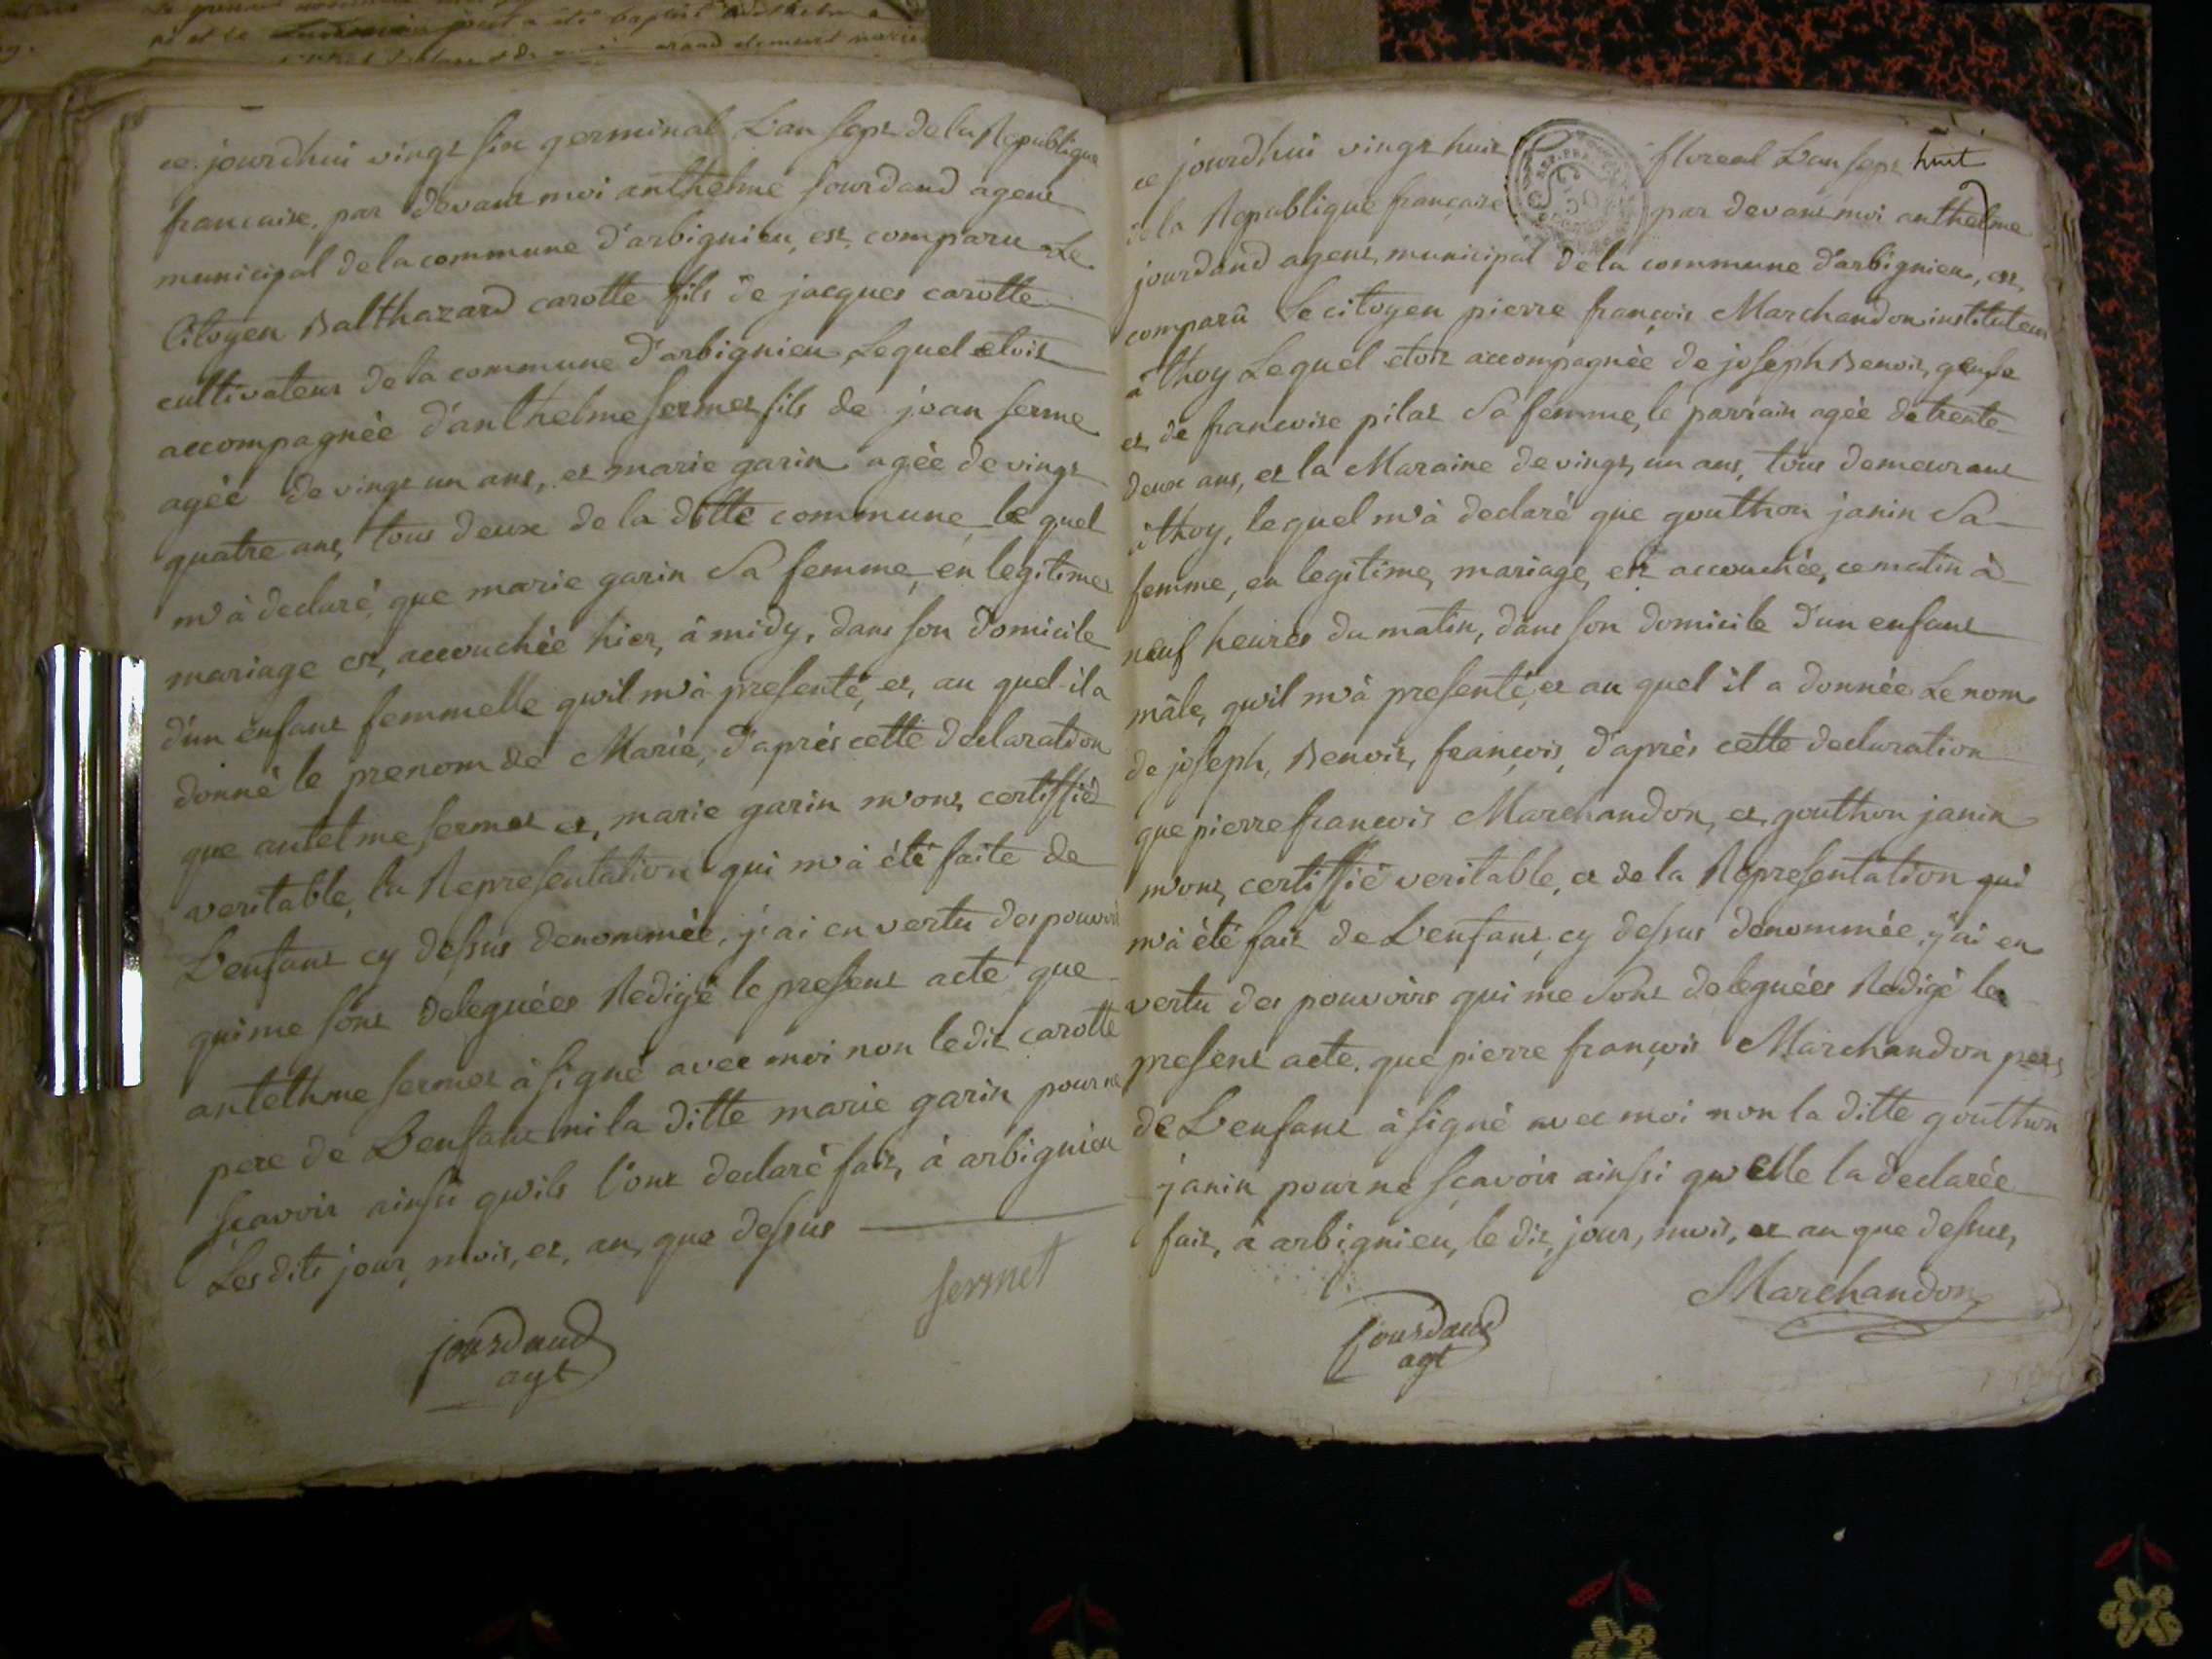 ce jourdhui vingt six germinal L'an sept de la Republique
francaise, par devant moi anthelme Jourdand agent
municipal de la commune d'arbignieu, est, comparu Le
Citoyen Balthazard carotte fils de jacques carotte
cultivateur de la commune d'arbignieu, Lequel etoit
accompagnèè d'anthelme sermet fils de jean serme
agèè de vingt un ans, et marie garin agèè de vingt
quatre ans, tous deux de la ditte commune, le quel
m'à declaré, que marie garin Sa femme, en legitime
mariage est, accouchèè hier, à midy, dans son domicile
d'un enfant femmelle qu'il m'à presenté, et, au quel il a
donné le prenom de Marie, d'après cette declaration
que antelme sermet et, marie garin m'ont, certiffiéé
veritable, la Representation qui m'à été faite de
L'enfant cy dessus denommèe, j'ai en vertu des pouvoirs
qui me sont deleguées Redigé le present acte que
antethme sermet à signé avec moi non le dit carotte
pere de L'enfant ni la ditte marie garin pour ne
sçavoir ainsi qu'ils l'ont declaré fait, à arbignieu
Les dits jour, mois, et, an, que dessus
sermet
jourdand
agt
ce jourdhui vingt huit floreal L'an sept huit
de la Republique française par devant moi anthelme
jourdand agent, municipal de la commune d'arbignieu, est,
comparû Le citoyen pierre françois Marchandon instituteur
à thoy Lequel etoit accompagnèe de joseph Benoit,
et, de francoise pilat Sa femme, le parrain agèe de trente
deux ans, et la Maraine de vingt, un ans, tous demeurant
à thoy, lequel m'à declaré que gouthon janin Sa
femme, en legitime, mariage, est accouchèe, ce matin à
neuf heures du matin, dans son domicile d'un enfant
mâle, qu'il m'à presenté, et au quel il a donnèe Le nom
de joseph, Benoit, françois, d'après cette declaration
que pierre francois Marchandon, et, gouthon janin
m'ont, certiffié veritable, et de la Representation qui
m'à été fait de L'enfant, cy dessus denommèe, j'ai en
vertu des pouvoirs qui me Sont deleguées Redigé le
present acte. que pierre françois Marchandon pere
de L'enfant à signé avec moi non la ditte gouthon
janin pour ne sçavoir ainsi qu'elle la declarée
fait, à arbignieu, le dit, jour, mois, et an que dessus,
Marchandon
Jourdand
agt